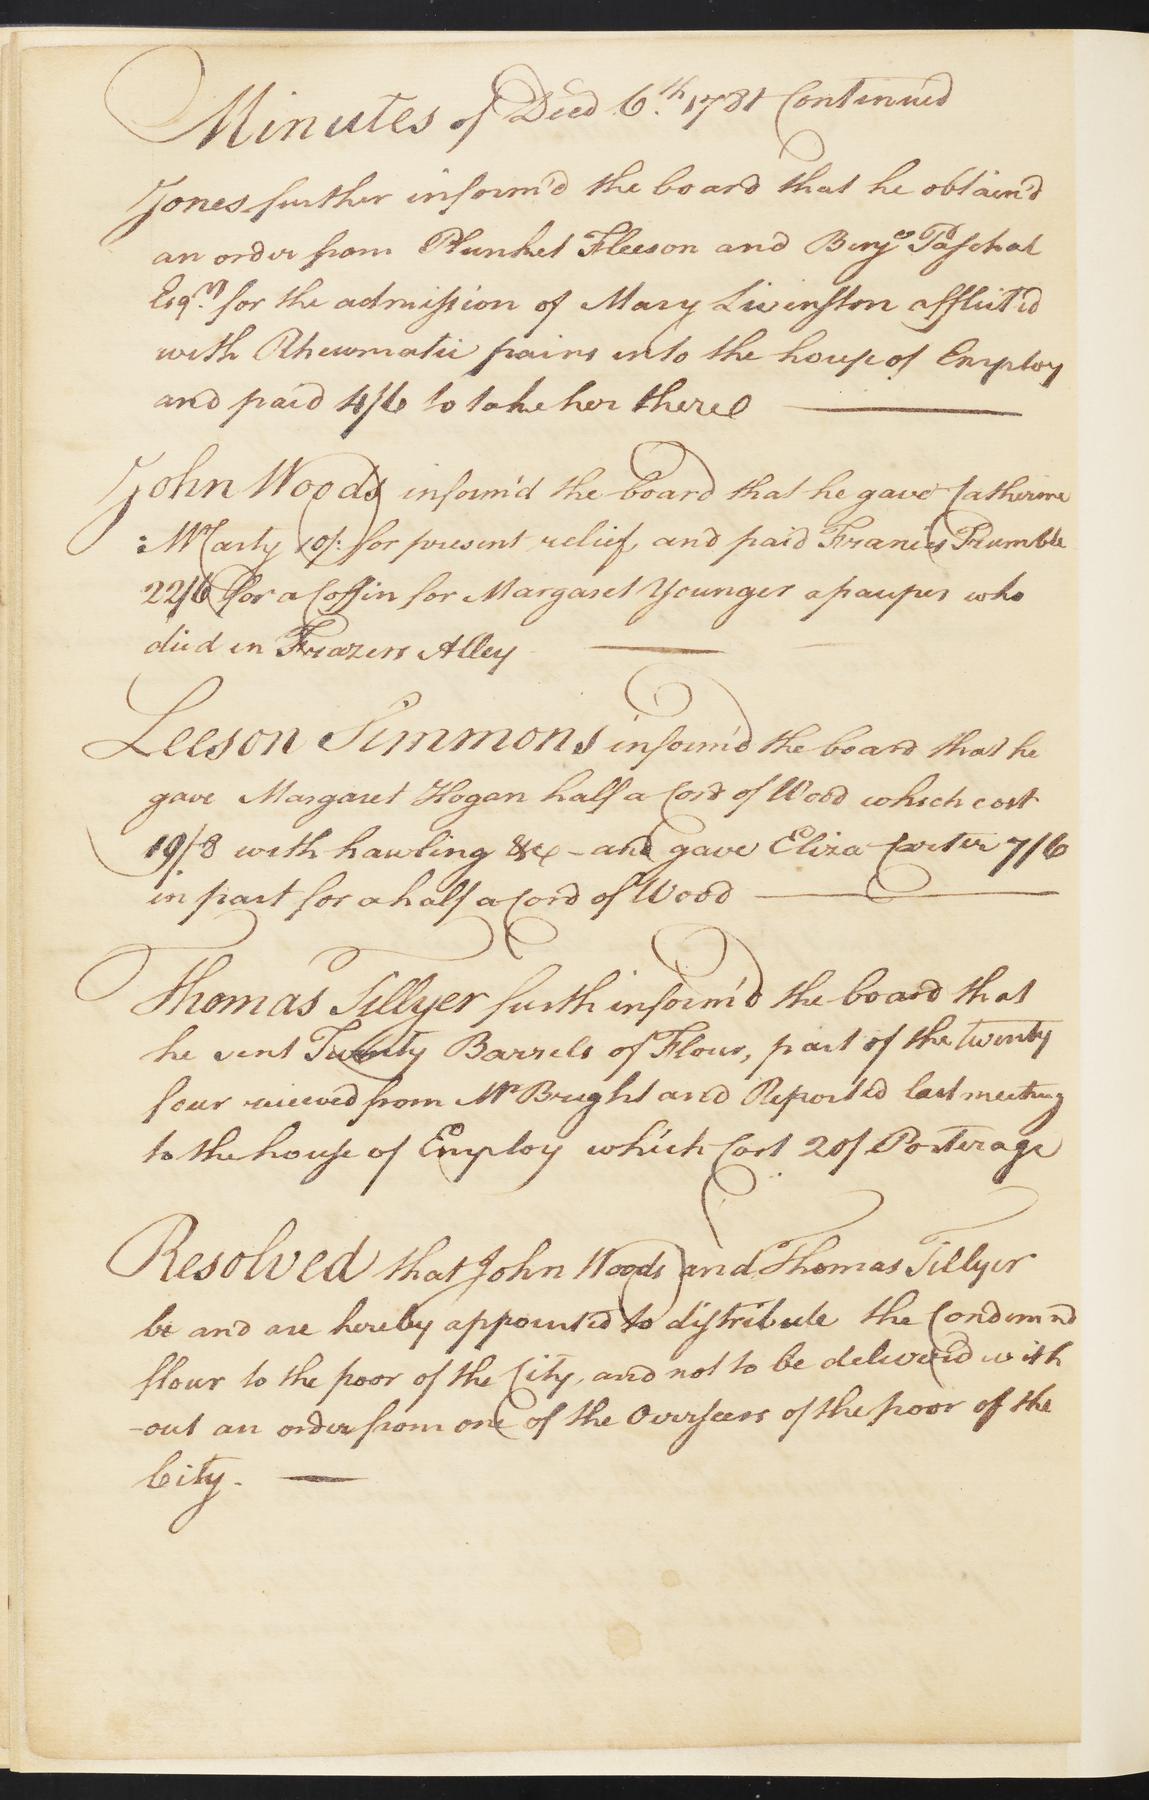 Minutes of Decd 6.th 1781 Continued
Jones further inform'd the board that he obtain'd
an order from Plunket Fleeson and Benja Paschal
Esqrs for the admission of Mary Livinston afflicted
with Rheumatic pains into the house of Employ
and paid 4/6 to take her there
John Woods inform'd the board that he gave Catherine
:McCarty 10/: for present relief, and paid Francis Trumble
22/6 for a Coffin for Margaret Younger a pauper who
died in Frazers Alley
Leeson Simmons inform'd the board that he
gave Margaret Hogan half a Cord of Wood which cost
19/8 with hawling &c - and gave Eliza Carter 7/6
in part for a half a Cord of Wood
Thomas Tillyer furth inform'd the board that
he sent Twenty Barrels of Flour, part of the twenty
four received from Mr Bright and Reported last meeting
to the house of Employ which Cost 20/ Porterage
Resolved that John Woods and Thomas Tillyer
be and are hereby appointed to distribute the Condemnd
flour to the poor of the City, and not to be deliver'd with
-out an order from one of the Overseers of the poor of the
City.